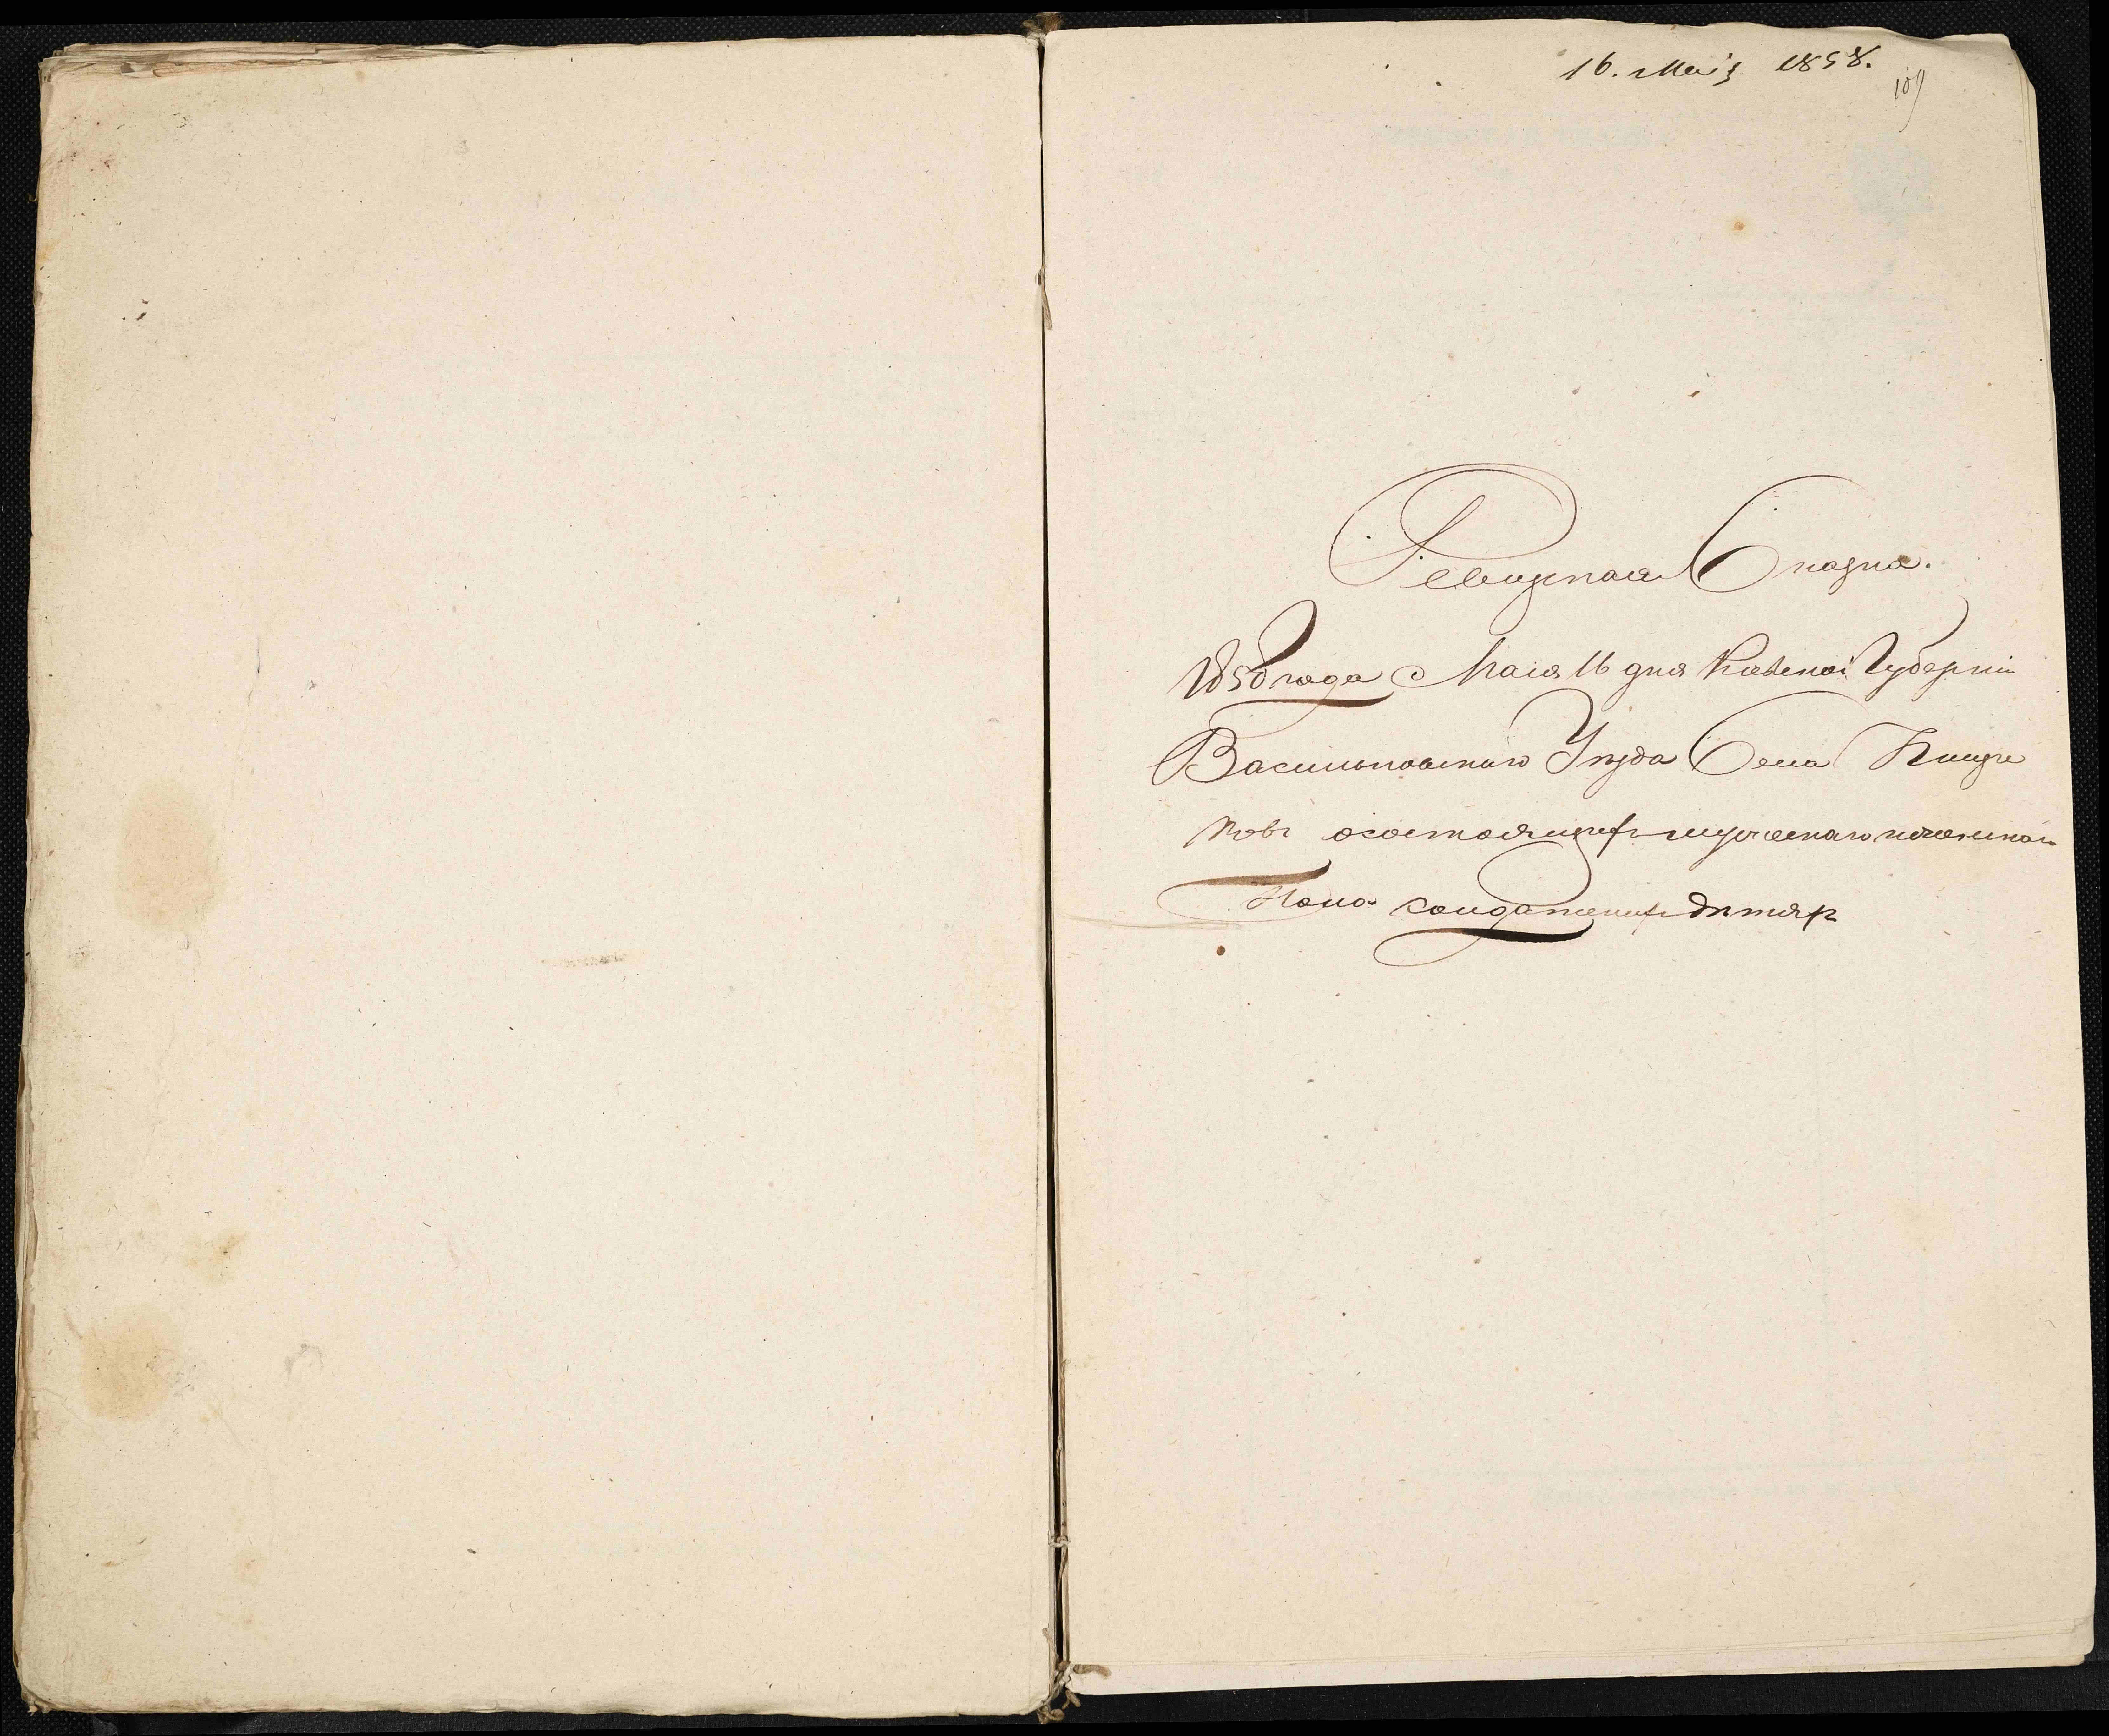 16. Маія 1858.
109
Ревизская Сказка.
1858 года Маія 16 дня Киевской Губерніи
Васильковскаго Уезда Села Кищен
цовъ осостоящихъ мужескаго и женскаго
Пола солдатскихъ дѣтяхъ